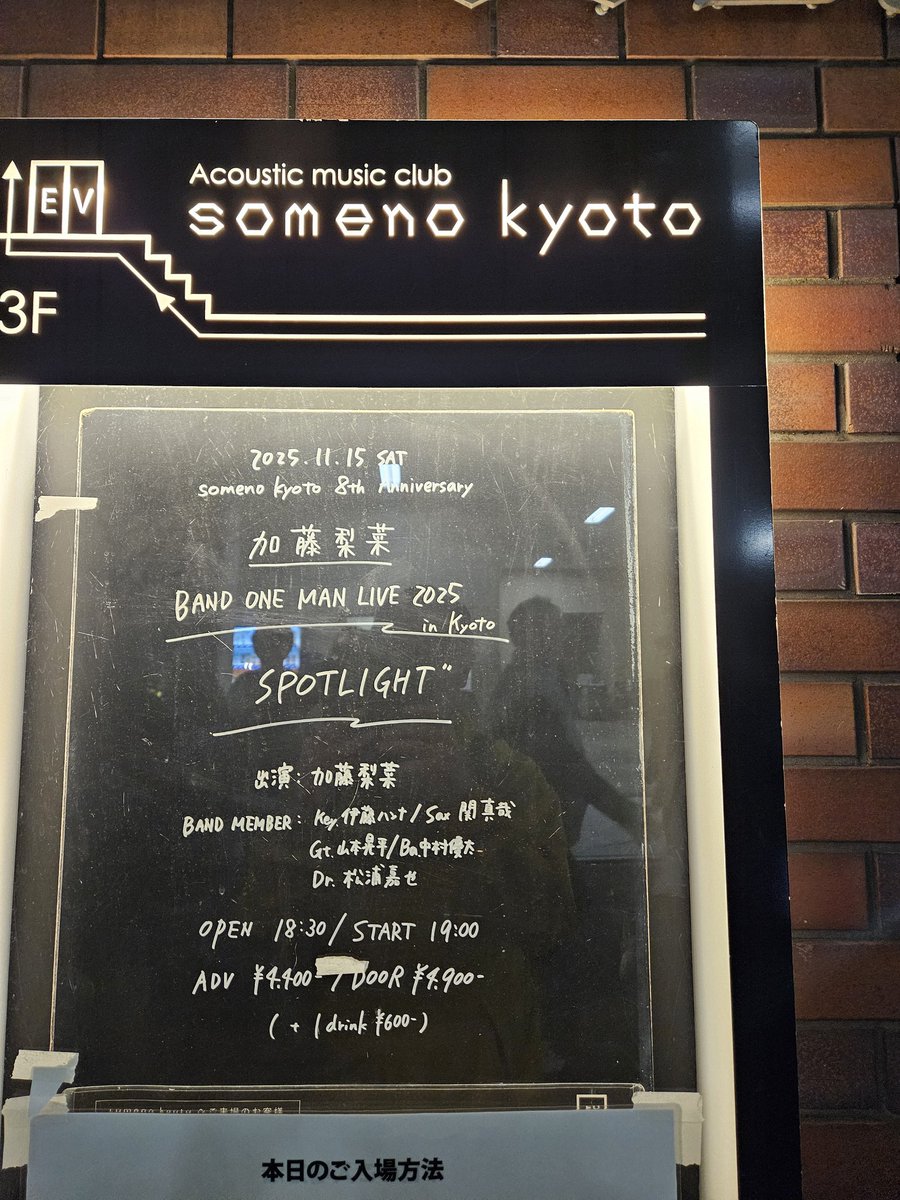 Acoustic music club
someno kyoto
EV
3F
2025.11.15 SAT
someno kyoto 8th Anniversary
加藤梨菜
BAND ONE MAN LIVE 2025
in Kyoto
"SPOTLIGHT"
出演: 加藤梨菜
BAND MEMBER: Key. 伊藤ハンナ / Sax 関真哉
Gt. 山本晃平 / Ba 中村優太
Dr. 松浦嘉世
OPEN 18:30 / START 19:00
ADV ¥4.400- / DOOR ¥4.900-
( + 1 drink ¥600- )
someno kyoto へご来場のお客様
本日のご入場方法